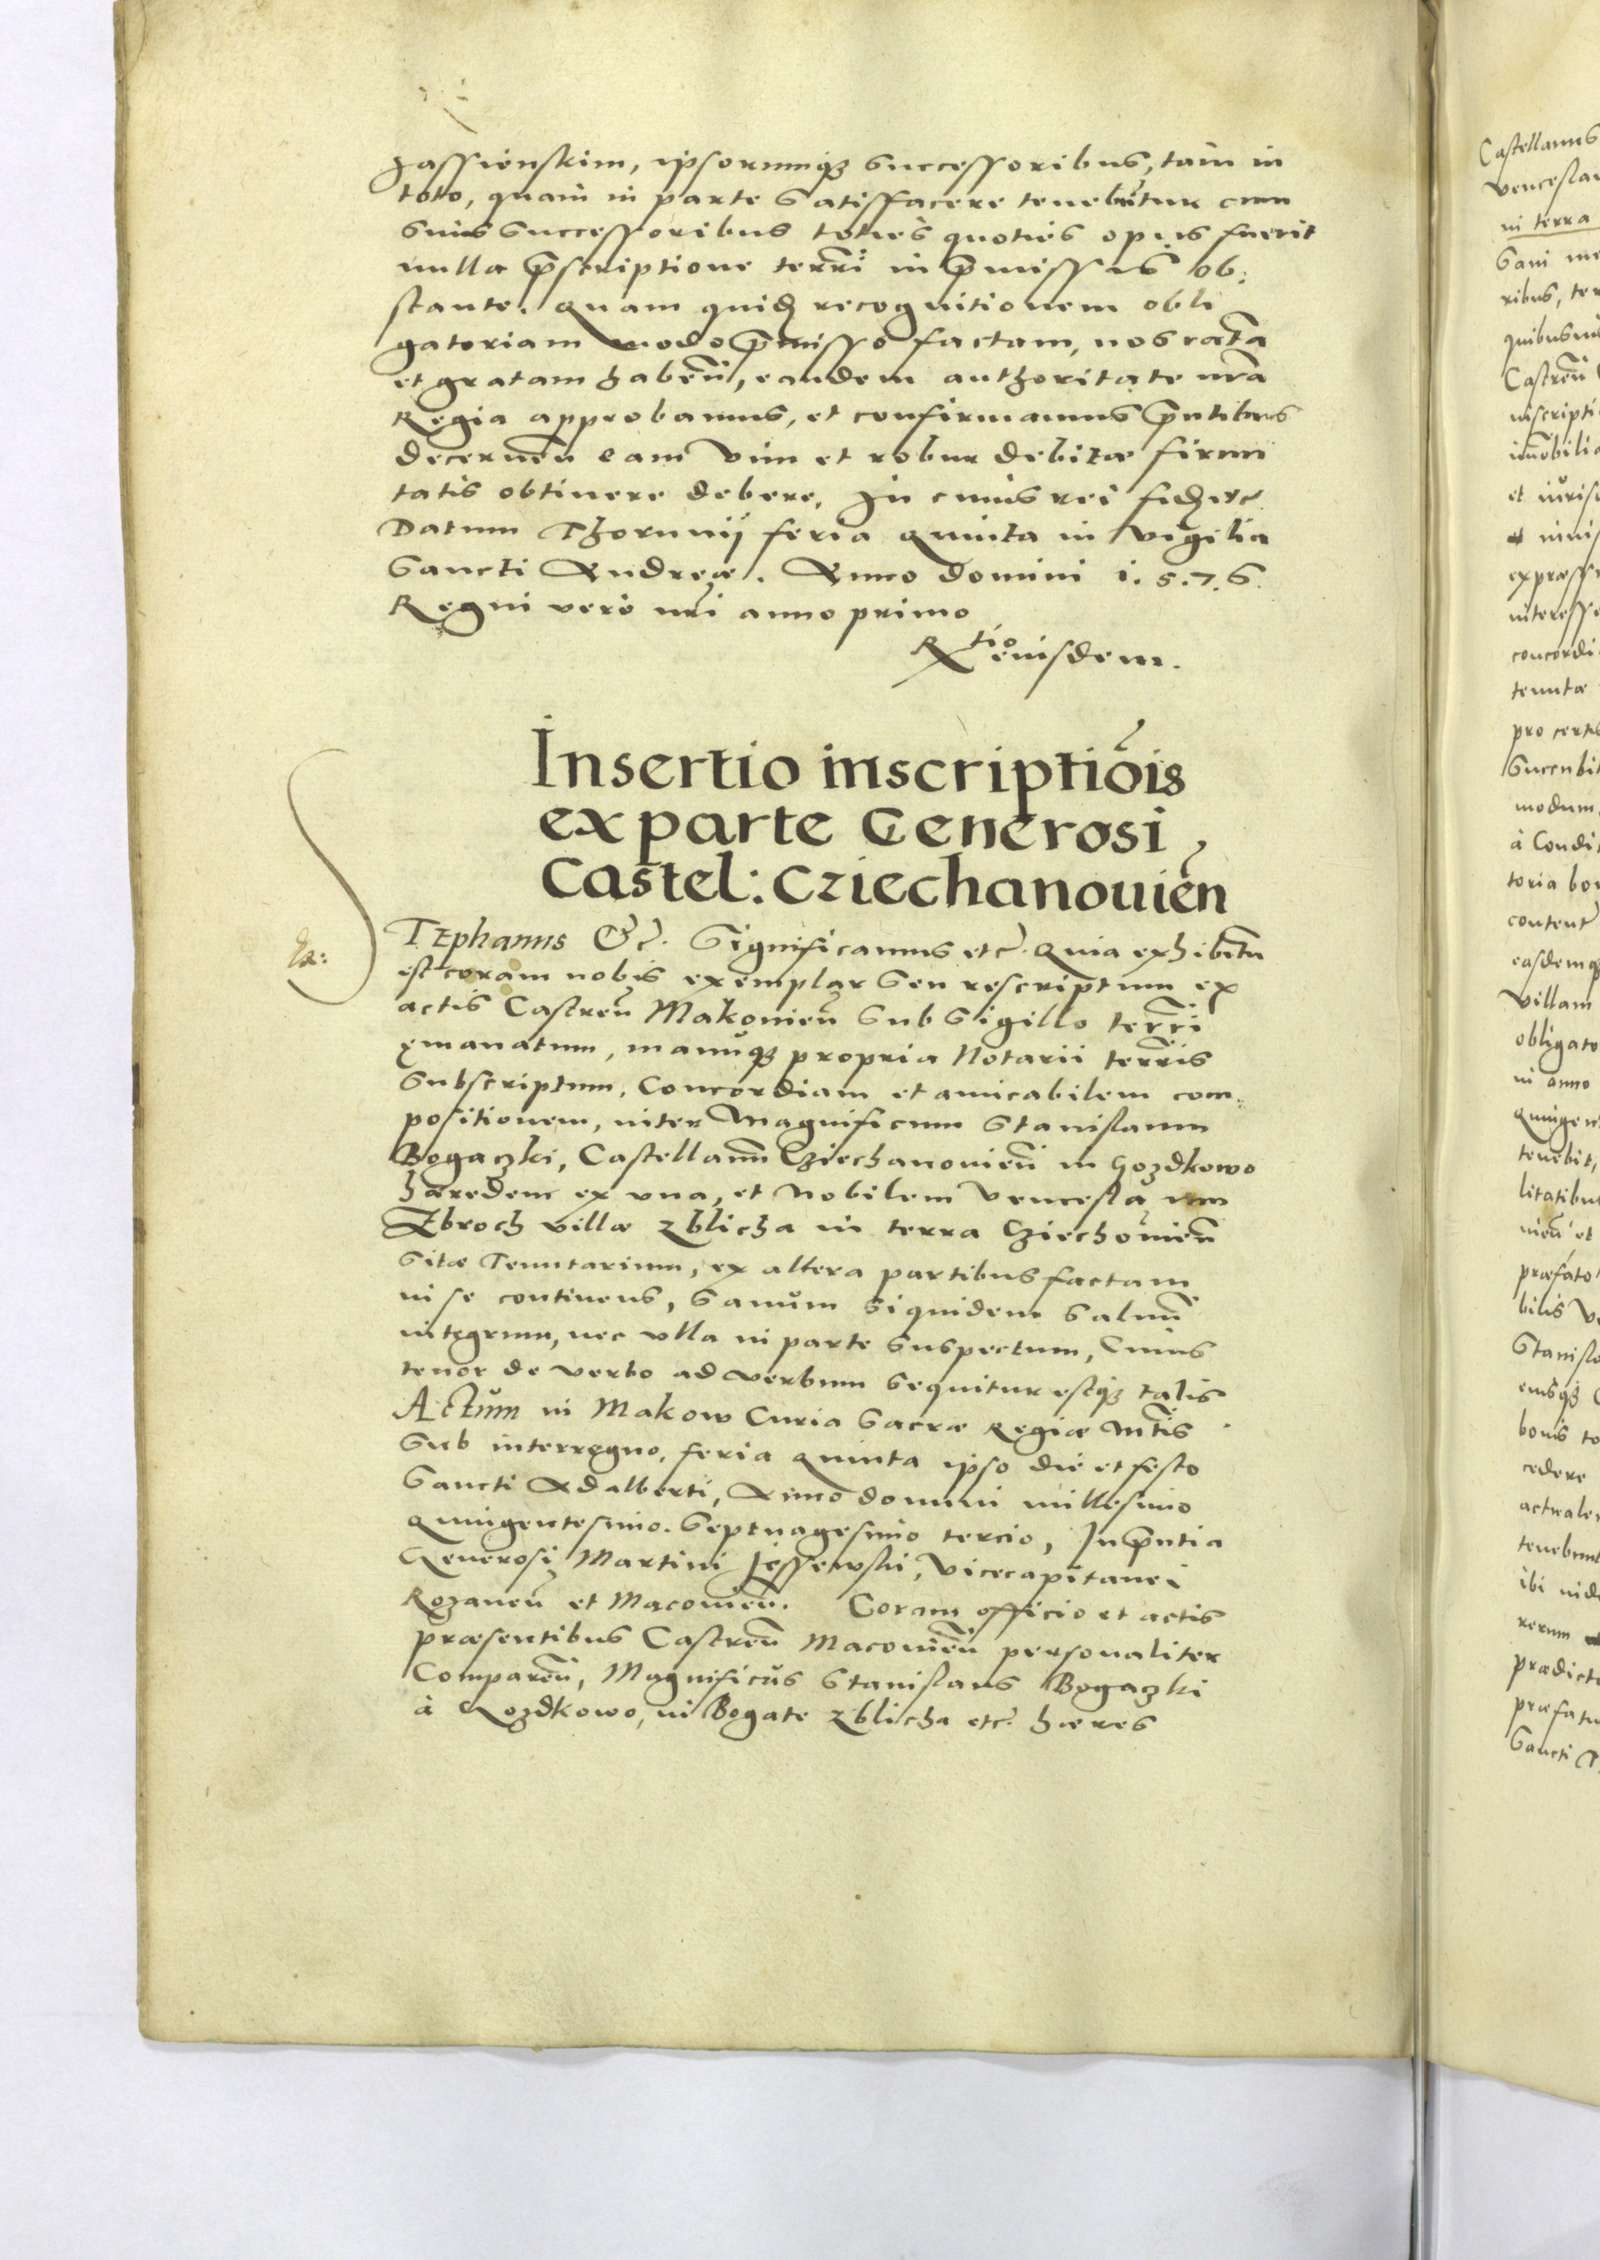 Jassienskim, ipsorumq₃ successoribus, tam in
toto, quam in parte satisfacere tenebũtur cum
suis successoribus toties quoties opus fuerit
nulla p̃scriptione terr̃i in p̃missis ob:
stante. Quam quid recognitionem obli
gatoriam modo p̃misso factam, nos ratã
et gratam habeñ, eandem authoritate nr̃a
Regia approbamus, et confirmamus p̃ntibus
decerneñ eam vim et robur debitæ firmi
tatis obtinere debere. In cuius rei fid etc.
Datum Thorunij feria quinta in vigilia
Sancti Andreæ. Anno domini 1.5.7.6.
Regni vero nr̃i anno primo
Rtio eiusdem.
Insertio inscriptiõis
ex parte Generosi
Castel: Cziechanouieñ
STEphanus &c. Significamus etc. Quia exhibitũ
est coram nobis exemplar seu rescriptum ex
actis Castreñ Makouieñ sub sigillo terr̃i
emanatum, manuq₃ propria Notarii terr̃is
subscriptum, Concordiam et amicabilem com:
positionem, inter Magnificum Stanislaum
Bogaczki, Castellanũ Cziechanouieñ in Gozdkowo
hæredem ex vna, et Nobilem Venceslaum
Zbroch villæ Zblicha in terra Cziechõuieñ
sitæ Tenutarium, ex altera partibus factam
in se continens, sanum siquidem saluũ
integrum, nec vlla in parte suspectum, Cuius
tenor de verbo ad verbum sequitur estq₃ talis
ACtum in Makow Curia Sacræ Regiæ Mt̃is
sub interregno, feria quinta ipso die et festo
Sancti Adalberti, Anno domini millesimo
quingentesimo. Septuagesimo tercio, In p̃ntia
Generosi Martini Jessewski, Vicecapitanei
Rozaneñ et Macouieñ. Coram officio et actis
præsentibus Castreñ Macouieñ personaliter
Compareñ, Magnificus Stanislaus Bogaczki
à Gozdkowo, in Bogate Zblicha etc. hæres
Castellanus
Venceslau
in terra
ribus, ter
Castreñ
inscripti
expræss
interesse
concordi
tenutæ
pro certis
succubit
modum
à Condi
toria bo
content
easdemq₃
villam
obligato
in anno
quingen
tenebit,
litatibu
præfato
Stanisla
bonis to
cedere
actuale
tenebunt
rerum
prædict
præfatu
Sancti